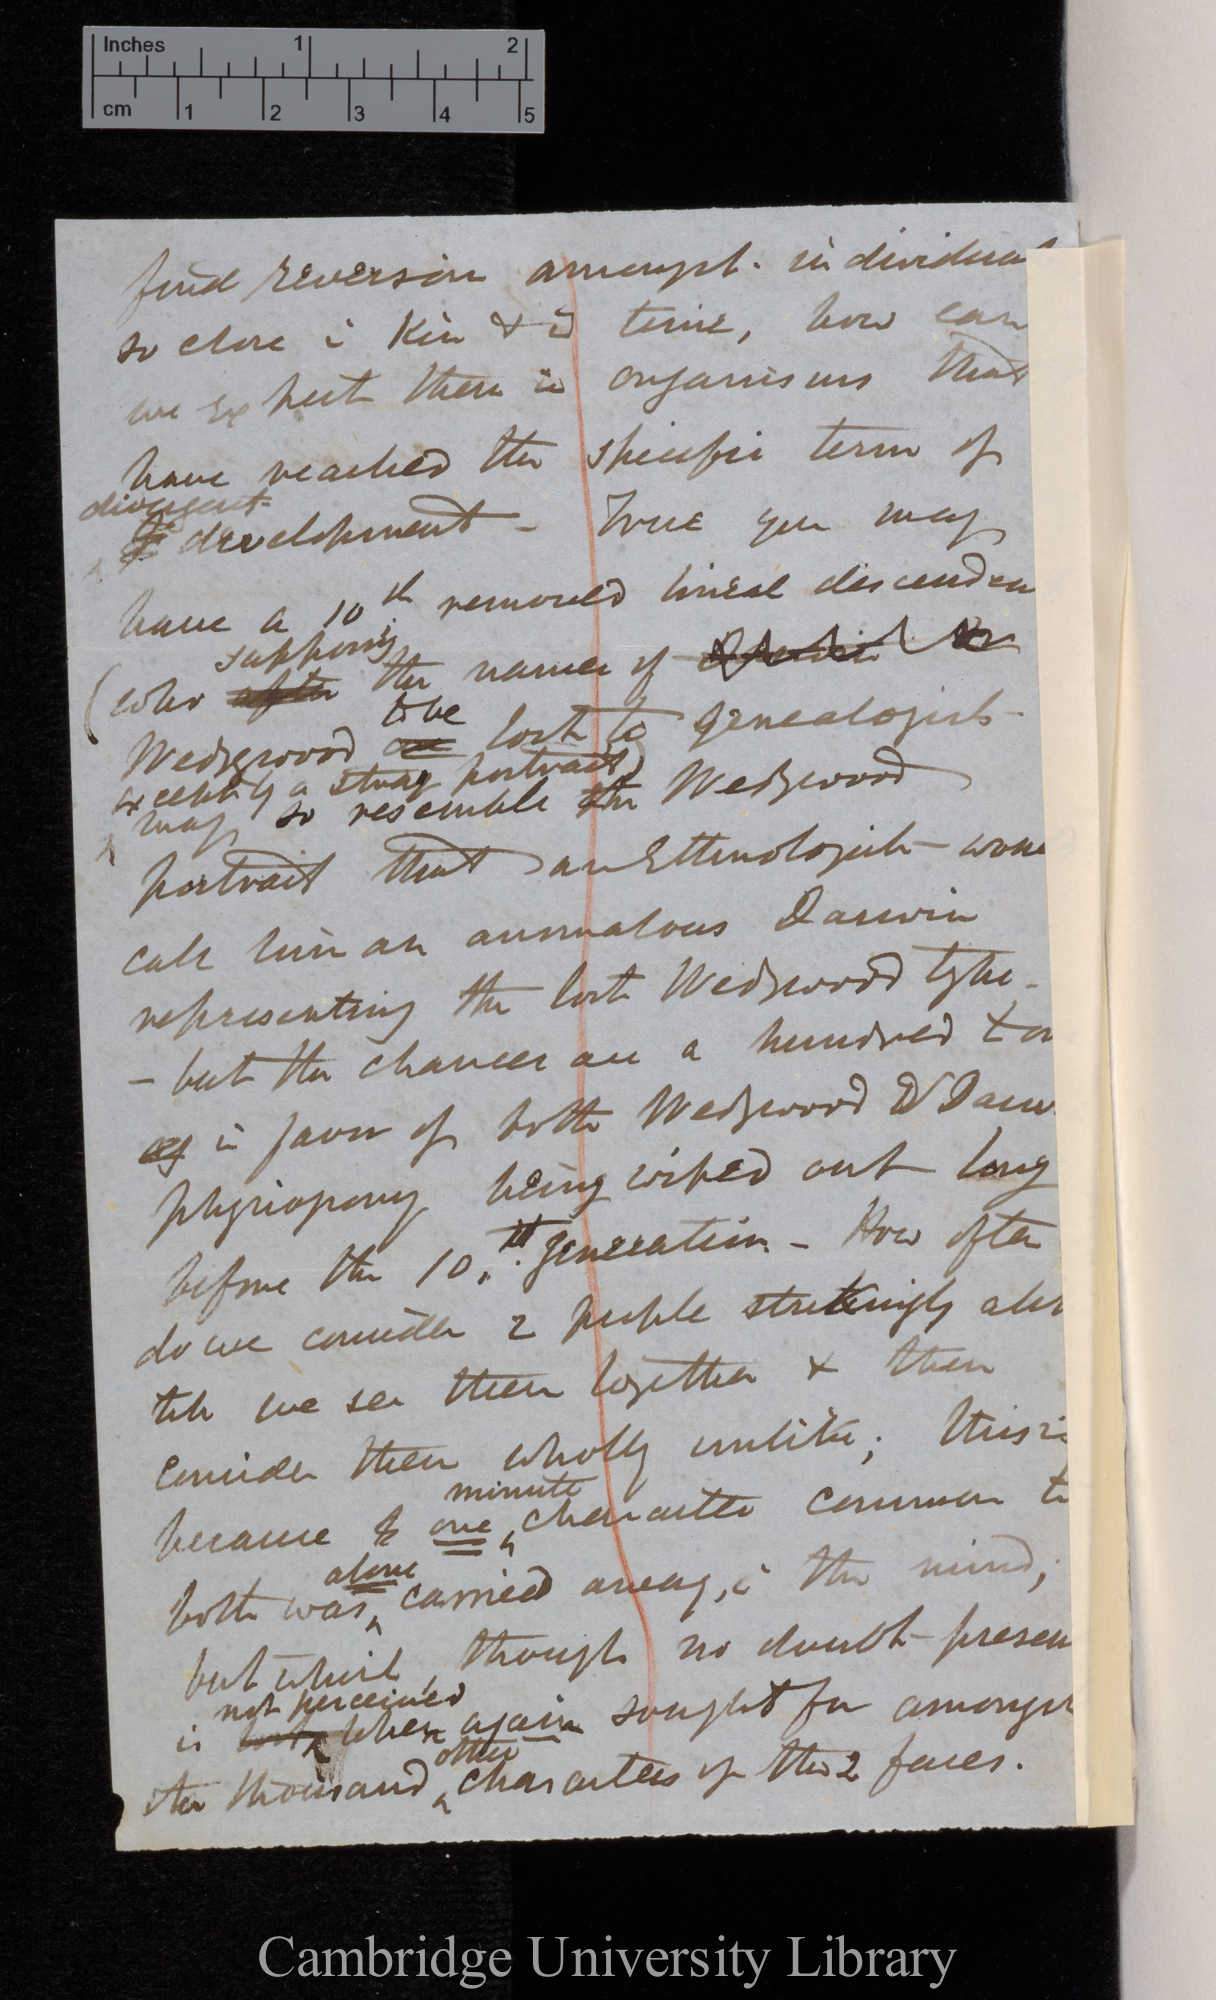 Inches 1 2
cm 1 2 3 4 5
find reversion amongst individual
so close in Kin & in time, how can
we expect them in organisms that
have reached the specific term of
divergent
development – True you may
have a 10th removed lineal descendan
supposing
(who after the names of Darwin or
to be
Wedgwood are lost to genealogists
excepting a stray portrait)
may so resemble the Wedgwood
portrait that an Ethnologist would
call him an anomalous Darwin
representing the lost Wedgwood type –
– but the chances are a hundred to on
in favor of both Wedgwood & Darw
physiognomy being wiped out long
before the 10th generation – How often
do we consider 2 people strikingly alik
till we see them together & then
consider them wholly unlike; this is
minute
because one character common to
alone
both was carried away, in the mind,
but which, though no doubt present
not perceived
is lost when again sought for amongst
other
the thousand characters of the 2 faces.
Cambridge University Library